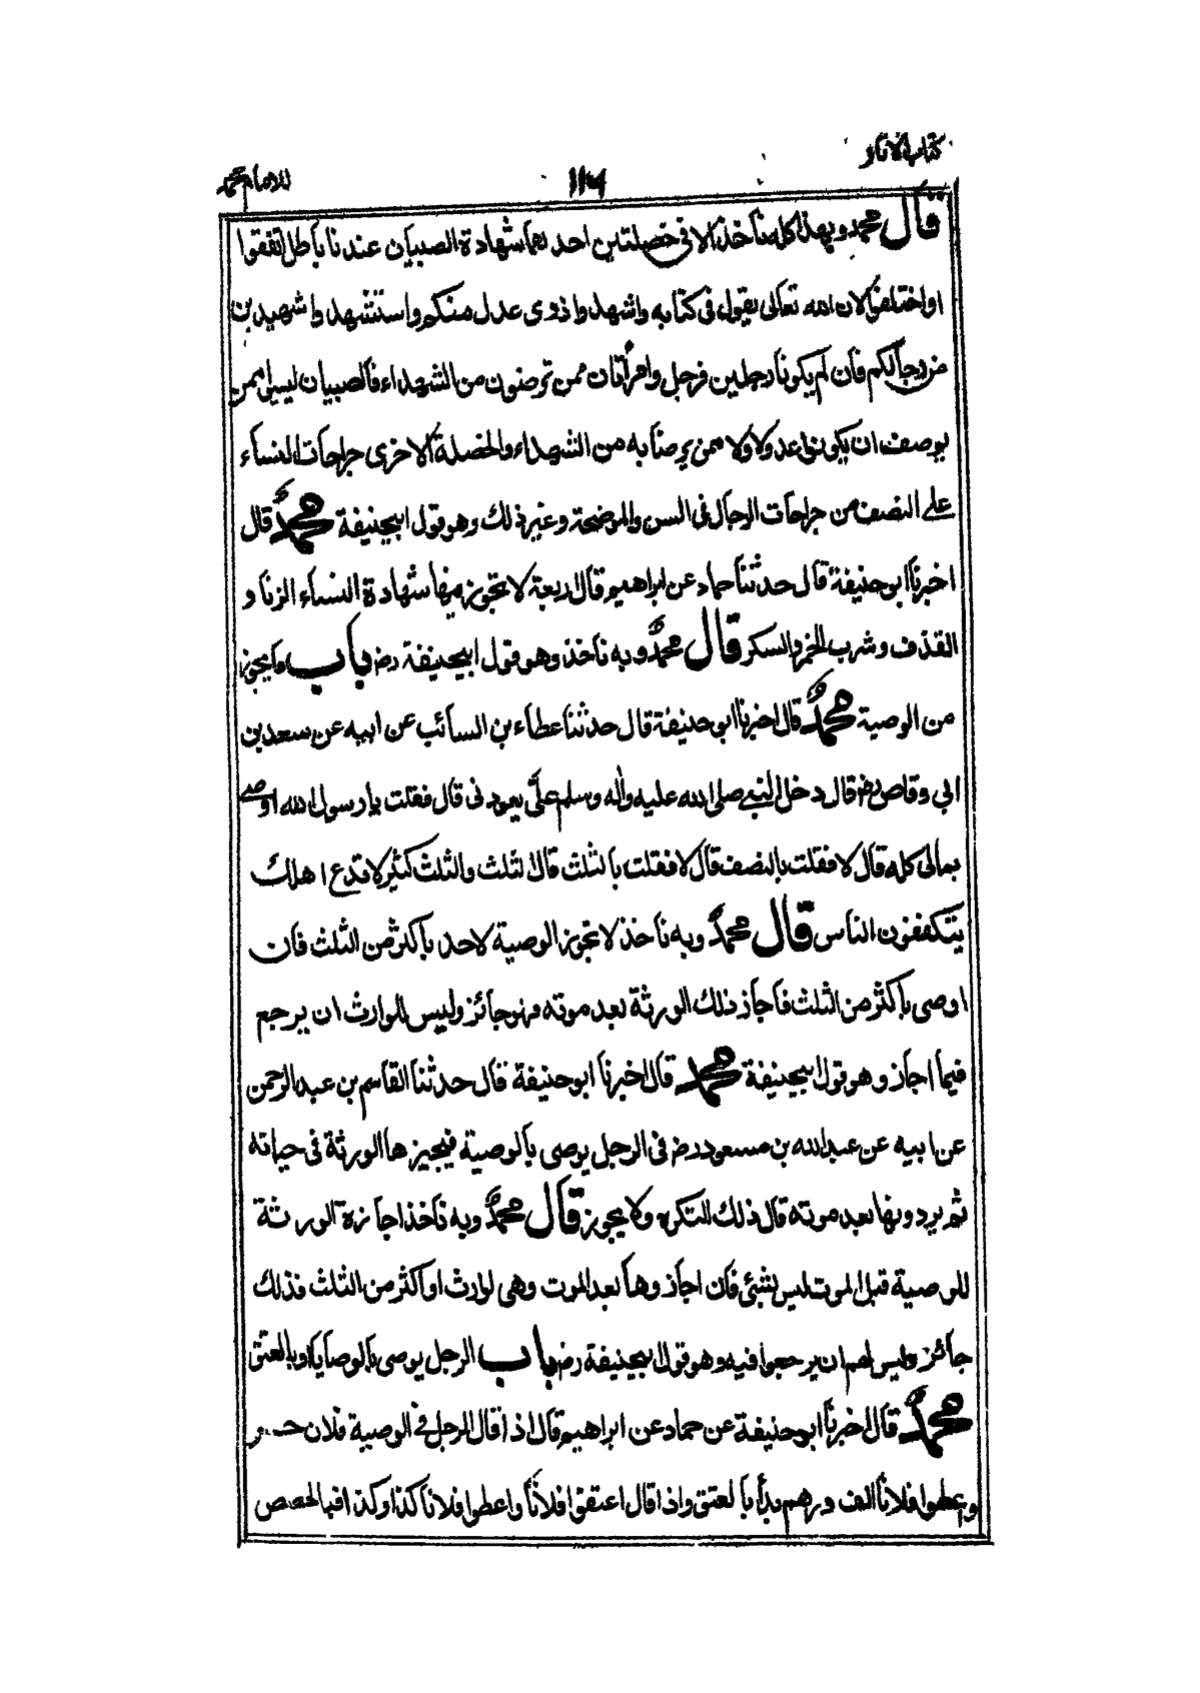 كتاب الاثار
١١٦
للامام محمد
قال محمد وبهذا كله نأخذ الا في خصلتين احدهما شهادة الصبيان عندنا باطل اتفقوا
او اختلفوا لان الله تعالى يقول في كتابه واشهدوا ذوى عدل منكم واستشهدوا شهيدين
من رجالكم فان لم يكونا رجلين فرجل وامرأتان ممن ترضون من الشهداء فالصبيان ليسوا ممن
يوصف ان يكونوا عدولا ولا ممن يرضا به من الشهداء والخصلة الاخرى جراحات النساء
على النصف من جراحات الرجال في السن والموضحة وغير ذلك وهو قول ابيحنيفة محمد قال
اخبرنا ابو حنيفة قال حدثنا حماد عن ابراهيم قال اربعة لا تجوز فيها شهادة النساء الزنا و
القذف وشرب الخمر والسكر قال محمد وبه نأخذ وهو قول ابيحنيفة رض باب ما يجوز
من الوصية محمد قال اخبرنا ابو حنيفة قال حدثنا عطاء بن السائب عن ابيه عن سعد بن
ابي وقاص رض قال دخل النبي صلى الله عليه واله وسلم علىّ يعود نى قال فقلت يا رسول الله اوصى
بمالى كله قال لا فقلت بالنصف قال لا فقلت بالثلث قال الثلث والثلث كثير لا تدع اهلك
يتكففون الناس قال محمد وبه نأخذ لا تجوز الوصية لاحد بأكثر من الثلث فان
اوصى باكثر من الثلث فأجاز ذلك الورثة بعد موته فهو جائز وليس للوارث ان يرجع
فيما اجاز وهو قول ابيحنيفة محمد قال اخبرنا ابو حنيفة قال حدثنا القاسم بن عبد الرحمن
عن ابيه عن عبد الله بن مسعود رض فى الرجل يوصى بالوصية فيجيزها الورثة فى حياته
ثم يردونها بعد موته قال ذلك التكره ولا يجوز قال محمد وبه نأخذ اجازة الورثة
للوصية قبل الموت ليس بشئ فان اجازوها بعد الموت وهى لوارث او اكثر من الثلث فذلك
جائز وليس لهم ان يرجعوا فيه وهو قول ابيحنيفة رض باب الرجل يوصى بالوصايا وبالعتق
محمد قال اخبرنا ابو حنيفة عن حماد عن ابراهيم قال اذا قال الرجل في الوصية فلان حر
واعطوا فلانا الف درهم بدأ بالعتق واذا قال اعتقوا فلانا واعطوا فلانا كذا وكذا فبالحصص